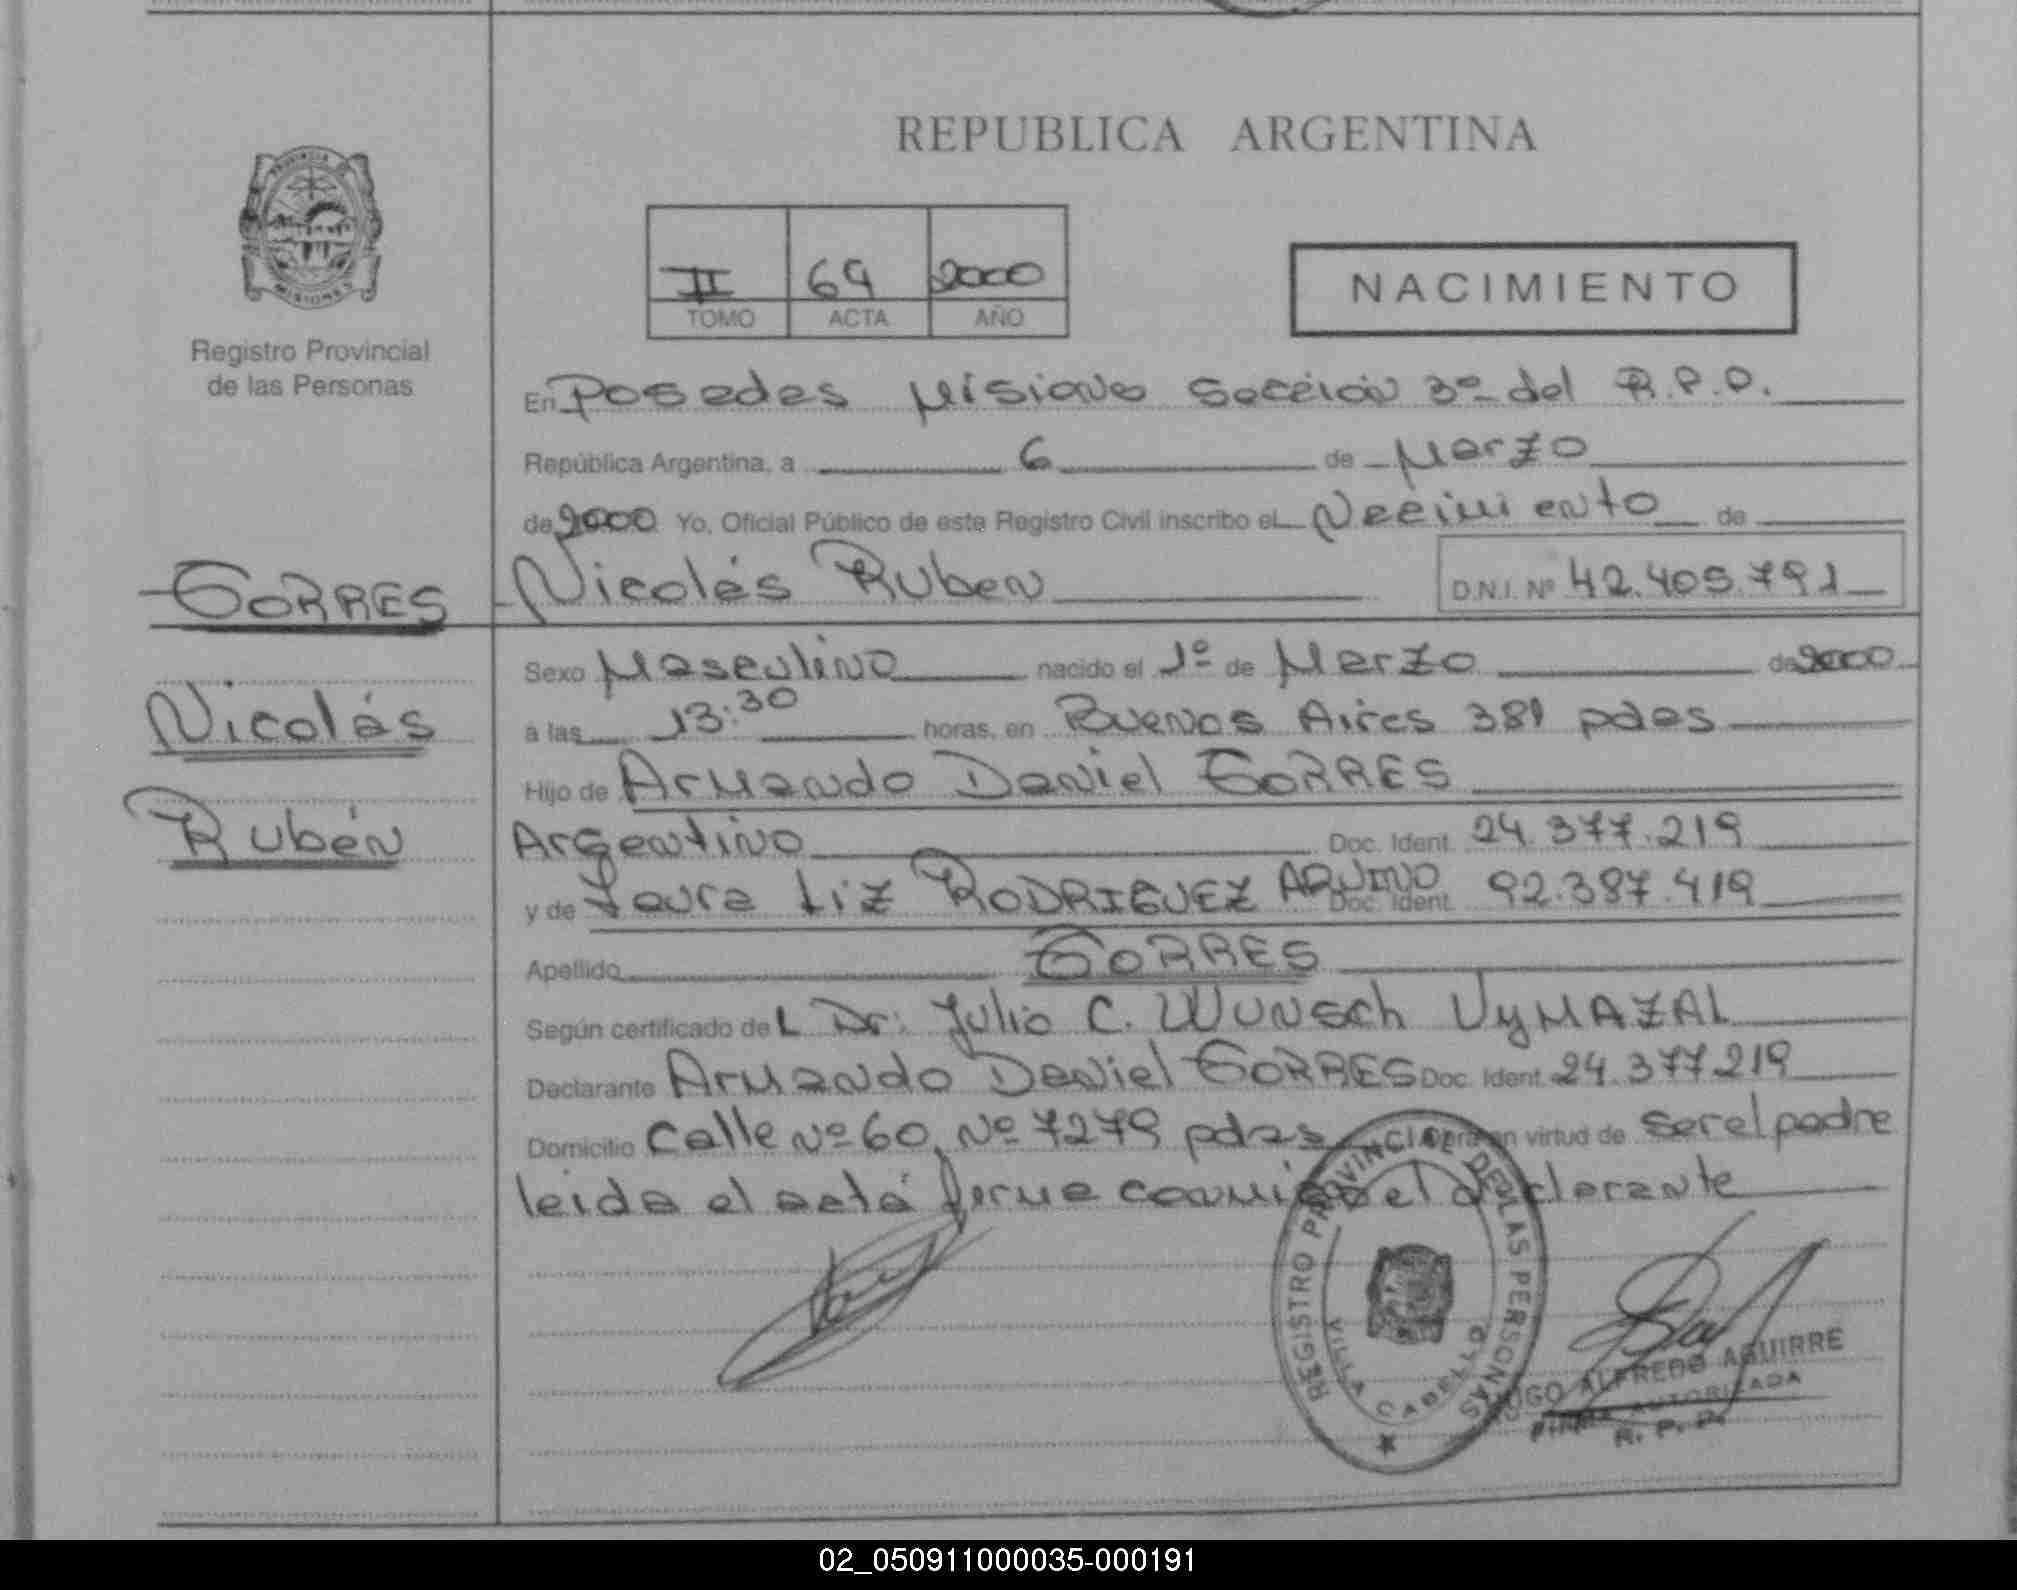 REPUBLICA ARGENTINA
PROVINCIA
MISIONES
Registro Provincial
de las Personas
II 69 2000
TOMO ACTA AÑO
NACIMIENTO
En Posadas Misiones Sección 3º del R.P.P.
República Argentina, a 6 de Marzo
de 2000 Yo, Oficial Público de este Registro Civil inscribo el Nacimiento de
TORRES Nicolás Ruben D.N.I. Nº 42.405.791
Sexo Masculino nacido el 1º de Marzo de 2000
Nicolás
a las 13:30 horas, en Buenos Aires 381 pdas
Hijo de Armando Daniel TORRES
Rubén
Argentino Doc. Ident. 24.377.219
y de Laura Liz RODRIGUEZ AQUINO Doc. Ident. 92.387.419
Apellido TORRES
Según certificado del Dr: Julio C. WUNSch VyMAZAL
Declarante Armando Daniel TORRES Doc. Ident. 24.377.219
Domicilio Calle nº 60, Nº 7279 pdas en virtud de ser el padre
leida el actá firma conmigo el declarante
REGISTRO PROVINCIAL DE LAS PERSONAS
VILLA CABELLO
HUGO ALFREDO AGUIRRE
FIRMA AUTORIZADA
R. P. P.
02_050911000035-000191